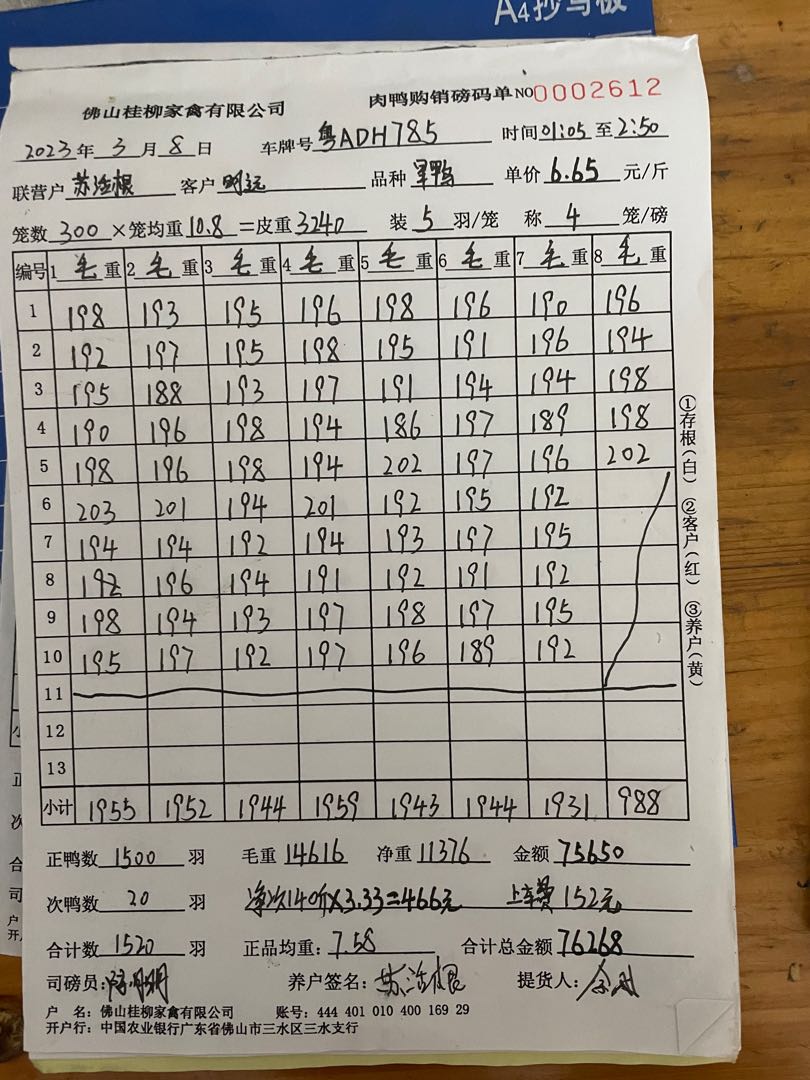 A4抄写板
佛山桂柳家禽有限公司 肉鸭购销磅码单 NO 0002612
2023年 3月 8日 车牌号 粤ADH785 时间 01:05 至 2:50
联营户 苏活根 客户 明远 品种 军鸭 单价 6.65 元/斤
笼数 300 ×笼均重 10.8 =皮重 3240 装 5 羽/笼 称 4 笼/磅
编号 1 毛重 2 毛重 3 毛重 4 毛重 5 毛重 6 毛重 7 毛重 8 毛重
1 198 193 195 196 198 196 190 196
2 192 197 195 198 195 191 196 194
3 195 188 193 197 191 194 194 198
4 190 196 198 194 186 197 189 198
5 198 196 198 194 202 197 196 202
6 203 201 194 201 192 195 192
7 194 194 192 194 193 197 195
8 192 196 194 191 192 191 192
9 198 194 193 197 198 197 195
10 195 197 192 197 196 189 192
11
12
13
小计 1955 1952 1944 1959 1943 1944 1931 988
①存根(白) ②客户(红) ③养户(黄)
正鸭数 1500 羽 毛重 14616 净重 11376 金额 75650
次鸭数 20 羽 净次140斤×3.33=466元 上车费152元
合计数 1520 羽 正品均重: 7.58 合计总金额 76268
司磅员: 养户签名: 苏活根 提货人:
户 名: 佛山桂柳家禽有限公司 账号: 444 401 010 400 169 29
开户行: 中国农业银行广东省佛山市三水区三水支行